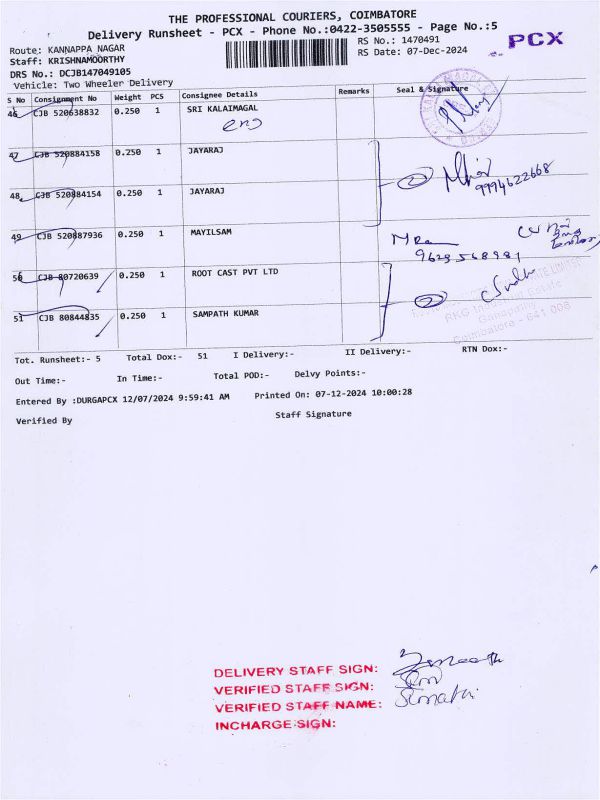 THE PROFESSIONAL COURIERS, COIMBATORE
Delivery Runsheet - PCX - Phone No.:0422-3505555 - Page No.:5
PCX
Route: KANNAPPA NAGAR
RS No.: 1470491
Staff: KRISHNAMOORTHY
RS Date: 07-Dec-2024
DRS No.: DCJB147049105
Vehicle: Two Wheeler Delivery
S No Consignment No Weight PCS Consignee Details Remarks Seal & Signature
46 CJB 520638832 0.250 1 SRI KALAIMAGAL
47 CJB 520884158 0.250 1 JAYARAJ
2
9994622668
48 CJB 520884154 0.250 1 JAYARAJ
49 CJB 520887936 0.250 1 MAYILSAM
50 CJB 80720639 0.250 1 ROOT CAST PVT LTD
2
51 CJB 80844835 0.250 1 SAMPATH KUMAR
Ganapathy
Coimbatore - 641 006
Tot. Runsheet:- 5 Total Dox:- 51 I Delivery:- II Delivery:- RTN Dox:-
Out Time:- In Time:- Total POD:- Delvy Points:-
Entered By :DURGAPCX 12/07/2024 9:59:41 AM Printed On: 07-12-2024 10:00:28
Verified By Staff Signature
DELIVERY STAFF SIGN:
VERIFIED STAFF SIGN:
VERIFIED STAFF NAME:
INCHARGE SIGN: